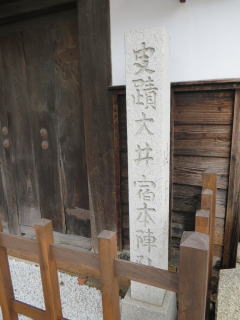 史蹟大井宿本陣跡